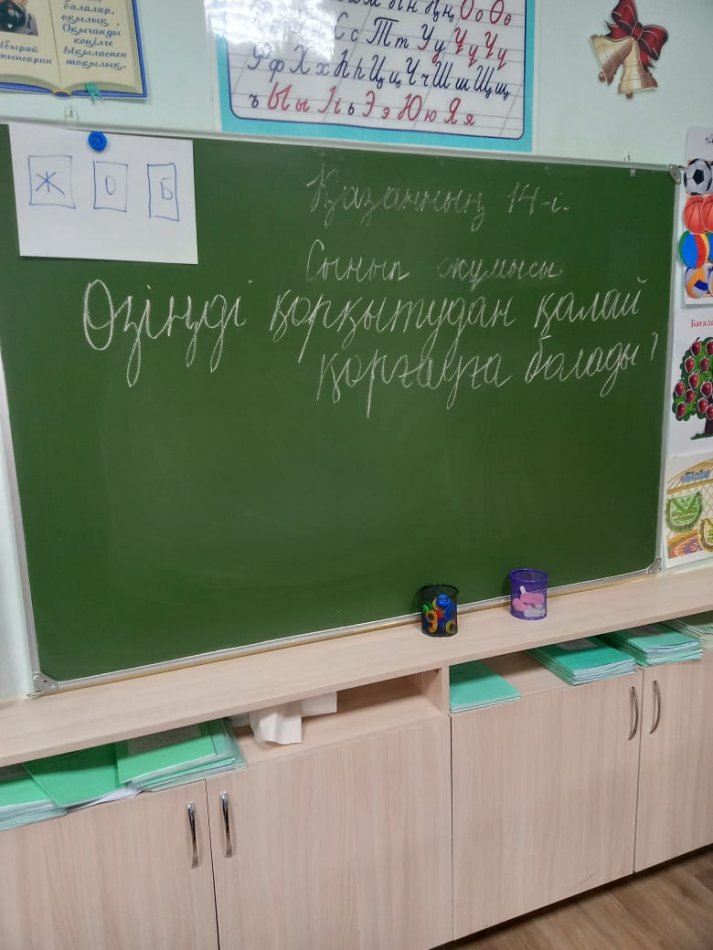 балалар,
оқылық
Оқығанды
көңілге
Ықыласпен
тоқылық..
Ыбырай
Оо Өө
Сс Тт Уу Ұұ Үү
Фф Хх Һһ Цц Чч Шш Щщ
ъ Ыы Іі ь Ээ Юю Яя
Ж О Б
Қазанның 14-і.
Сынып жұмысы
Өзіңді қорқытудан қалай
қорғауға болады?